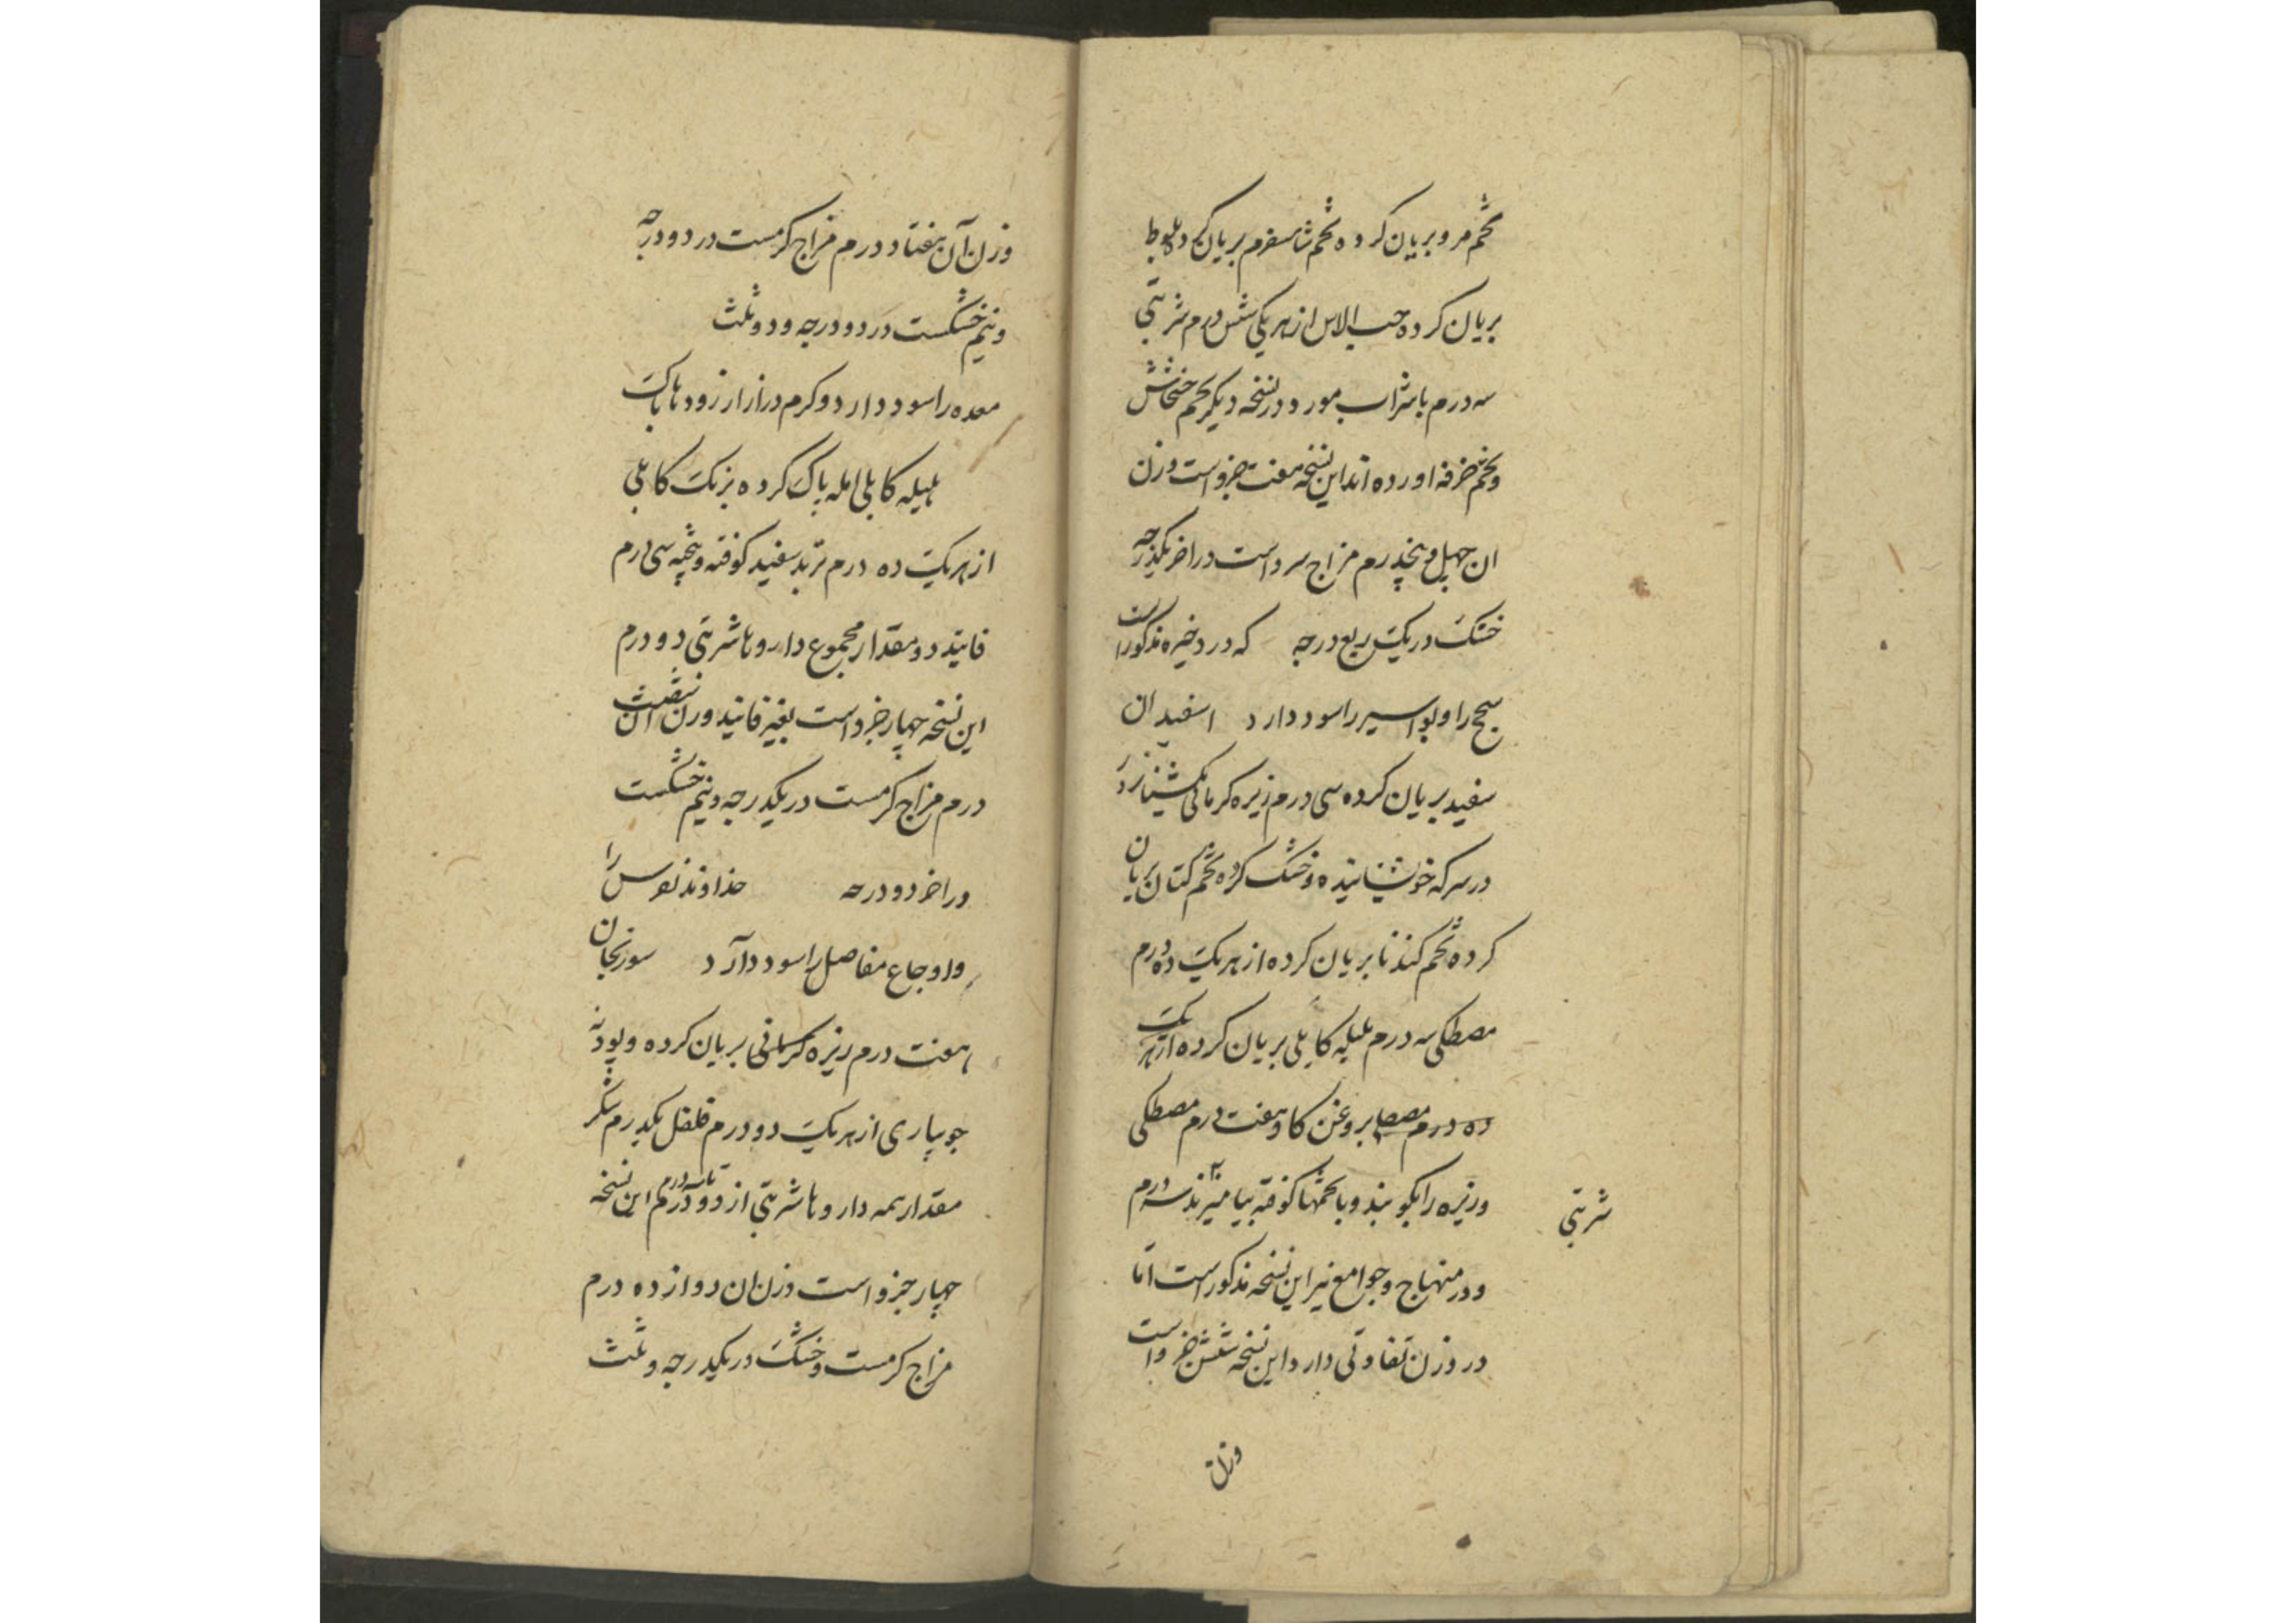 تخم مرو بریان کرده تخم شاهسفرم بریان کرده بلوط
بریان کرده حب الاس از هر یکی شش درم شربتی
سه درم با شراب مورد و در نسخه دیکر تخم خشخاش
و تخم خرفه اورده اند این نسخه هفت جزو است وزن
ان چهل و پنجدرم مزاج سرد است در اخر یکدرجه
خشک در یک ربع درجه که در ذخیره مذکور است
سحج را و بواسیر را سود دارد اسفیدان
سفید بریان کرده سی درم زیره کرمانی یکشبانروز
در سرکه خوشانیده و خشک کرده تخم کتان بریان
کرده تخم کندنا بریان کرده از هر یک ده درم
مصطکی سه درم هلیله کابلی بریان کرده از هر یک
ده درم بروغن کاو هفت درم مصطکی
و زیره را بکوبند و با تخمها کوفته بیامیزند سه درم
شربتی
و در منهاج و جوامع نیز این نسخه مذکور است اما
در وزن تفاوتی دارد این نسخه شش جزو است
وزن
وزن آن هفتاد درم مزاج کرمست در دو درجه
و نیم خشکست در دو درجه و دو ثلث
معده را سود دارد و کرم دراز از رودها پاک
هلیله کابلی امله پاک کرده برنک کابلی
از هر یک ده درم تربد سفید کوفته و پخته سی درم
فانید دو مقدار مجموع داروها شربتی دو درم
این نسخه چهار جزو است بغیر فانید وزن آن شصت
درم مزاج کرمست در یکدرجه و نیم خشکست
در اخر دو درجه خداوند نقرس را
و اوجاع مفاصل را سود دارد سورنجان
هفت درم زیره کرمانی بریان کرده و پودنه
جویباری از هر یک دو درم فلفل یکدرم شکر
مقدار همه داروها شربتی از دو درم تا سه درم این نسخه
چهار جزو است وزن ان دوازده درم
مزاج کرمست و خشک در یکدرجه و ثلث